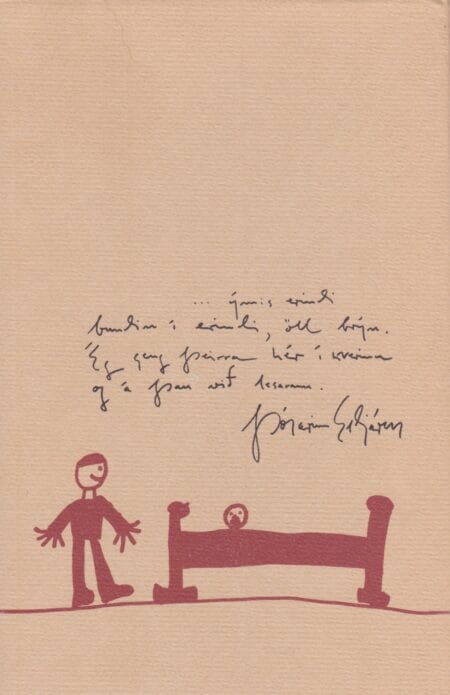 ... ýmis erindi
bundin í erindi, öll brýn.
Ég geng þeirra hér í kverinu
og á þau við lesarann.
Þórarinn Eldjárn